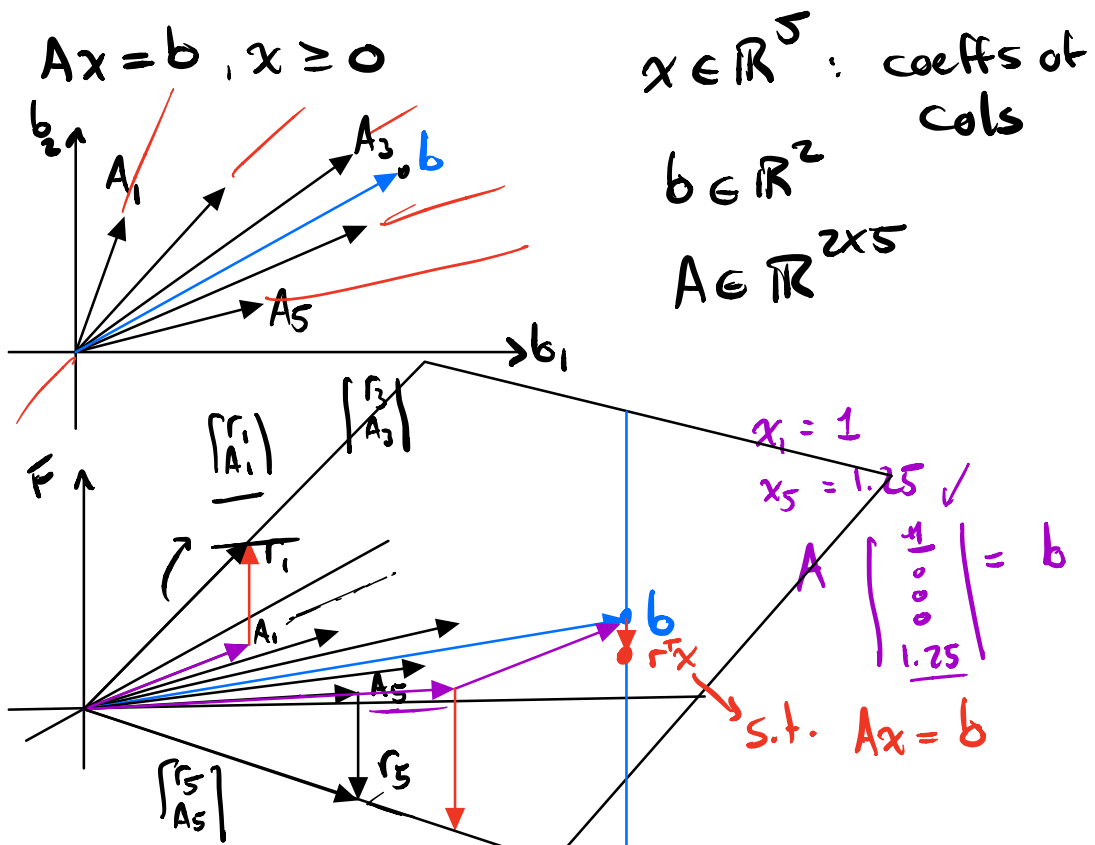 Ax = b , x ≥ 0
x ∈ ℝ⁵ : coeffs of
cols
b ∈ ℝ²
A ∈ ℝ²ˣ⁵
b₂
A₁
A₃
b
A₅
b₁
[r₁
A₁]
[r₃
A₃]
F
r₁
A₁
A₅
b
rᵀx
s.t. Ax = b
x₁ = 1
x₅ = 1.25 ✓
A [1
0
0
0
1.25] = b
r₅
[r₅
A₅]